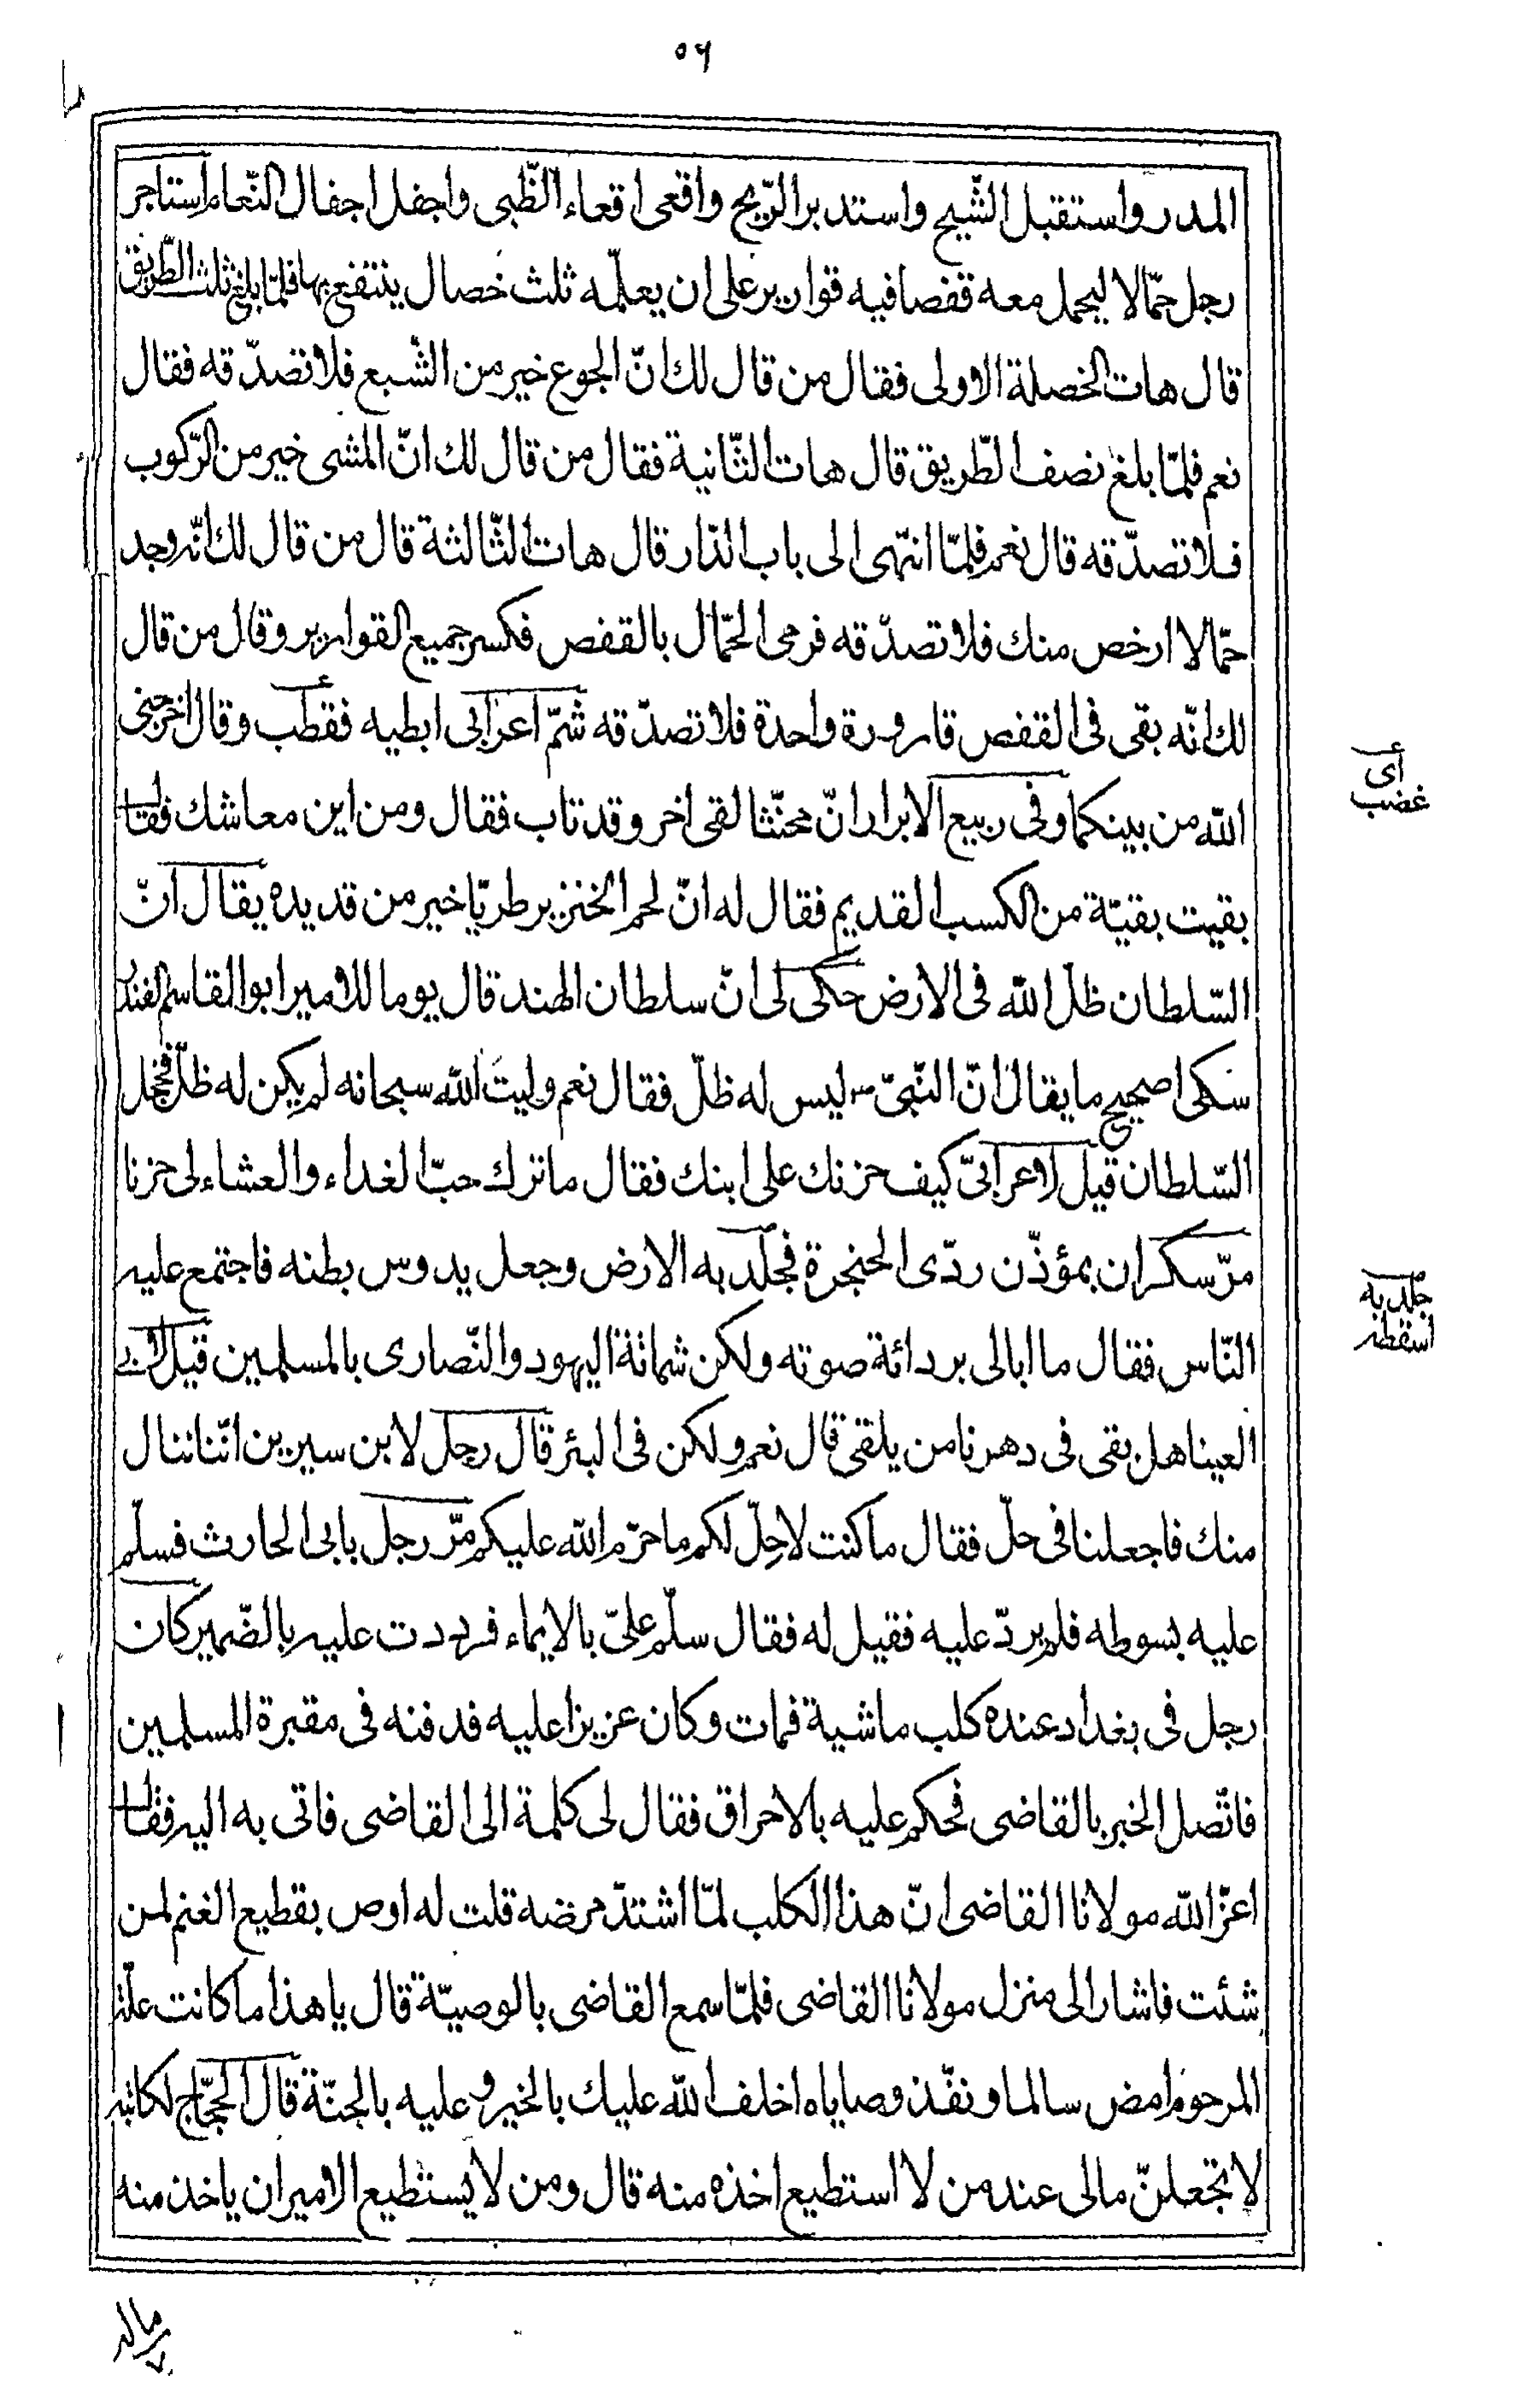 ٥٦
المدر واستقبل الشّيح واستدبر الرّيح واقعى اقعاء الظّبى واجفل اجفال النّعام استاجر
رجل حمّالا ليحمل معه قفصا فيه قوارير على ان يعلّمه ثلث خصال ينتفع بها فلمّا بلغ ثلث الطّريق
قال هات الخصلة الاولى فقال من قال لك انّ الجوع خير من الشّبع فلا تصدّقه فقال
نعم فلمّا بلغ نصف الطّريق قال هات الثّانية فقال من قال لك انّ المشى خير من الرّكوب
فلا تصدّقه قال نعم فلمّا انتهى الى باب الدّار قال هات الثّالثة قال من قال لك انّه وجد
حمّالا ارخص منك فلا تصدّقه فرمى الحمّال بالقفص فكسر جميع القوارير وقال من قال
لك انّه بقى فى القفص قارورة واحدة فلا تصدّقه شمّ اعرابى ابطيه فقطب وقال اخرجنى
الله من بينكما وفى ربيع الابرار انّ مخنّثا لقى اخر وقد تاب فقال ومن اين معاشك فقال
بقيت بقيّة من الكسب القديم فقال له انّ لحم الخنزير طريّا خير من قديده يقال انّ
السّلطان ظلّ الله فى الارض حكى لى انّ سلطان الهند قال يوما للامير ابو القاسم الفندر
سكى اصحيح ما يقال انّ النّبىّ ص ليس له ظلّ فقال نعم وليت الله سبحانه لم يكن له ظلّ فخجل
السّلطان قيل لاعرابىّ كيف حزنك على ابنك فقال ما ترك حبّ الغداء والعشاء لى حزنا
مرّ سكران بمؤذّن ردّى الحنجرة فجلد به الارض وجعل يدوس بطنه فاجتمع عليه
النّاس فقال ما ابالى بردائة صوته ولكن شماتة اليهود والنّصارى بالمسلمين قيل لابى
العينا هل بقى فى دهرنا من يلقى قال نعم ولكن فى البئر قال رجل لابن سيرين انّنا ننال
منك فاجعلنا فى حلّ فقال ما كنت لاحِلّ لكم ما حرّم الله عليكم مرّ رجل بابى الحارث فسلّم
عليه بسوطه فلم يردّ عليه فقيل له فقال سلّم علىّ بالايماء فرددت عليه بالضّمير كان
رجل فى بغداد عنده كلب ماشية فمات وكان عزيزا عليه فدفنه فى مقبرة المسلمين
فاتّصل الخبر بالقاضى فحكم عليه بالاحراق فقال لى كلمة الى القاضى فاتى به اليه فقال
اعزّ الله مولانا القاضى انّ هذا الكلب لمّا اشتدّ مرضه قلت له اوص بقطيع الغنم لمن
شئت فاشار الى منزل مولانا القاضى فلمّا سمع القاضى بالوصيّة قال يا هذا ما كانت علّة
المرحوم امض سالما ونفّذ وصاياه اخلف الله عليك بالخير وعليه بالجنّة قال الحجّاج لكاتبه
لا تجعلنّ مالى عند من لا استطيع اخذه منه قال ومن لا يستطيع الامير ان ياخذ منه
ماله
أى
غضب
جلد به
اسقطه